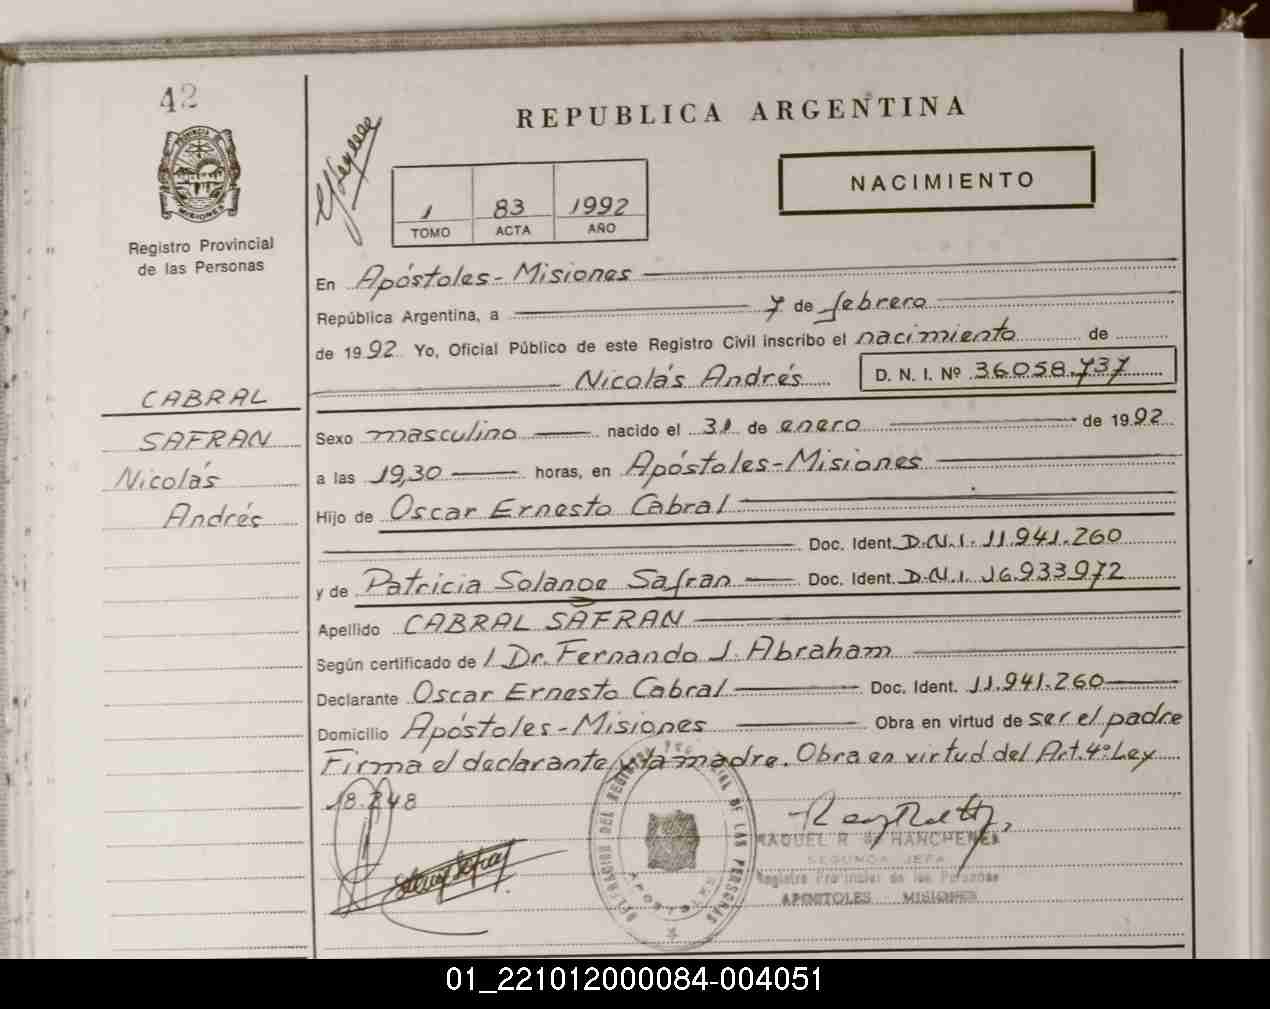 42
REPUBLICA ARGENTINA
NACIMIENTO
1 83 1992
TOMO ACTA AÑO
PROVINCIA
MISIONES
Registro Provincial
de las Personas
En Apóstoles-Misiones
República Argentina, a 7 de febrero
de 1992 Yo, Oficial Público de este Registro Civil inscribo el nacimiento de
Nicolás Andrés D. N. I. Nº 36.058.737
CABRAL
SAFRAN
Nicolás
Andrés
Sexo masculino nacido el 31 de enero de 1992
a las 19,30 horas, en Apóstoles-Misiones
Hijo de Oscar Ernesto Cabral
Doc. Ident. D.N.I. 11.941.260
y de Patricia Solange Safran Doc. Ident. D.N.I. 16.933.972
Apellido CABRAL SAFRAN
Según certificado de / Dr. Fernando J. Abraham
Declarante Oscar Ernesto Cabral Doc. Ident. 11.941.260
Domicilio Apóstoles-Misiones Obra en virtud de ser el padre
Firma el declarante y la madre. Obra en virtud del Art. 4º Ley
18.248
DELEGACION DEL REGISTRO PROVINCIAL DE LAS PERSONAS
APOSTOLES
RAQUEL R
SEGUNDA JEFA
Registro Provincial de las Personas
APOSTOLES MISIONES
01_221012000084-004051